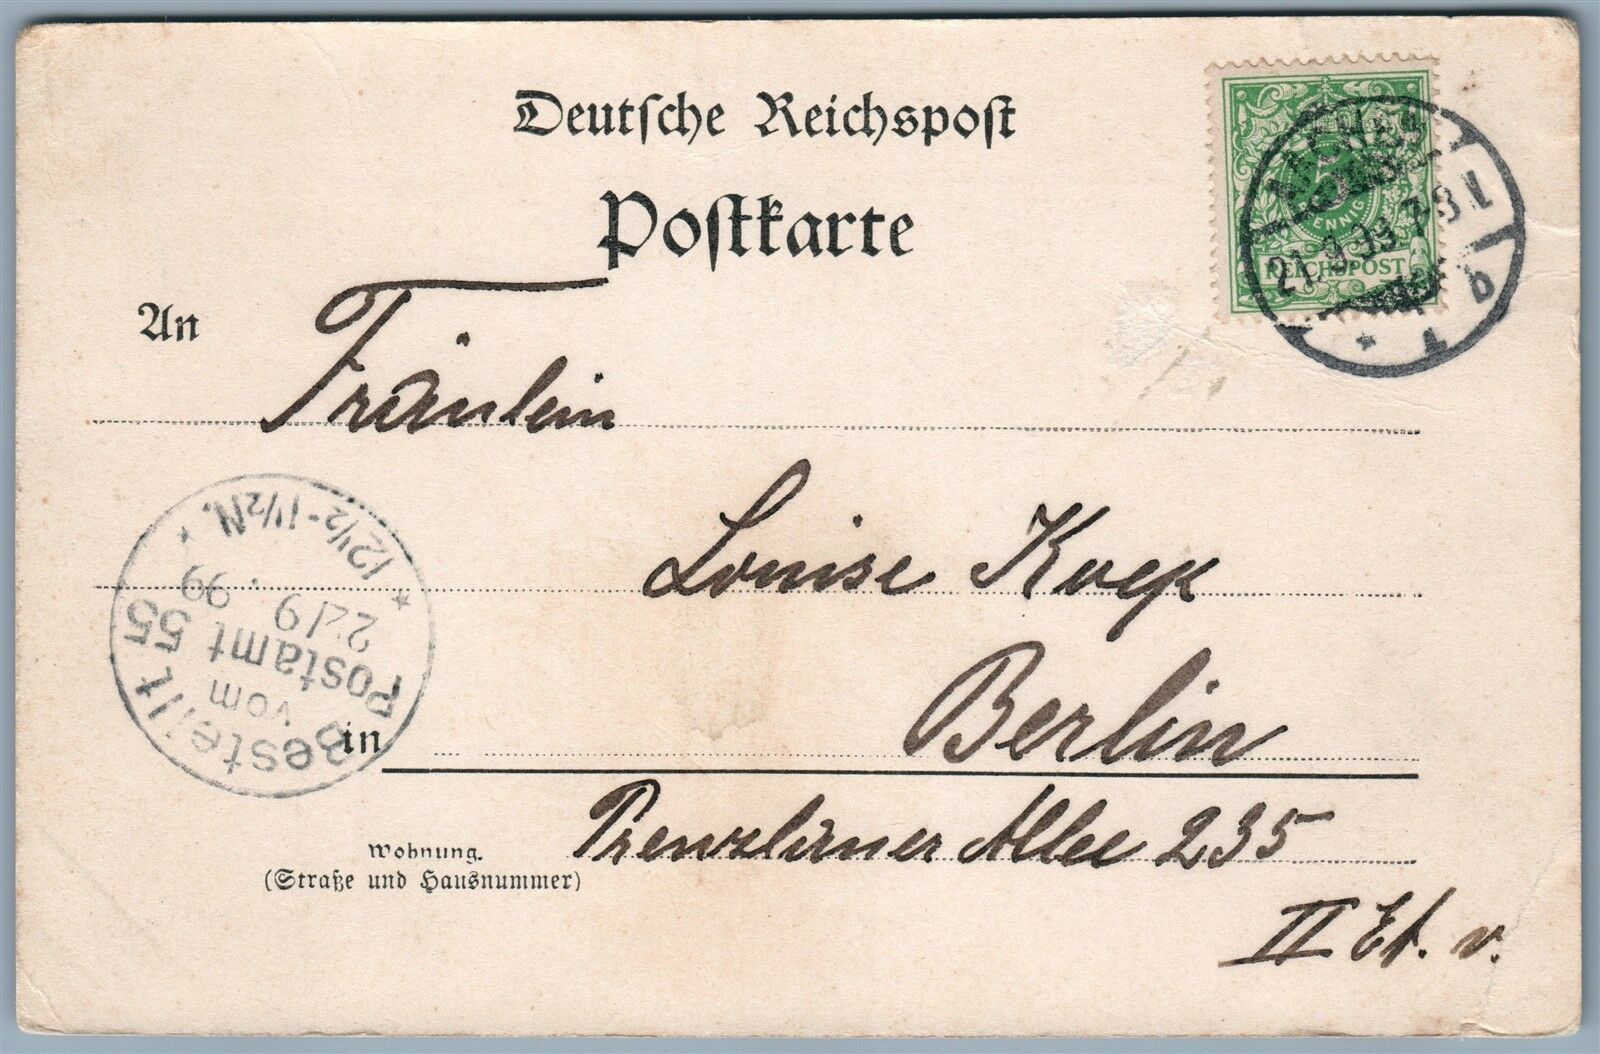 Deutsche Reichspost
Postkarte
AACHEN
21.9.99.7-8 N.
* 1 b
5
PFENNIG
REICHSPOST
An
Fräulein
Louise
in
Berlin
Wohnung.
(Straße und Hausnummer)
Prenzlauer Allee 235
II Et. v.
Bestellt
vom
Postamt 55
22/9 99
* 12½-1½N. *